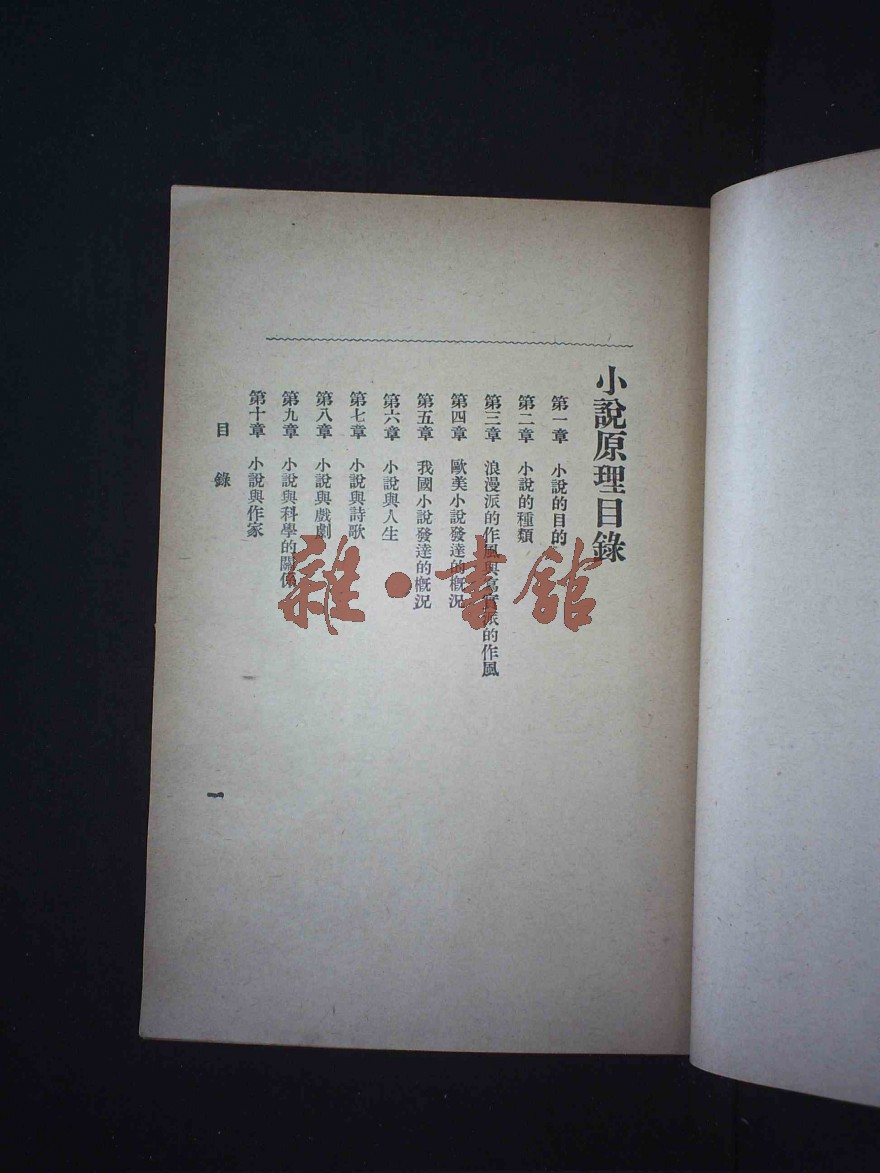 小說原理目錄
第一章 小說的目的
第二章 小說的種類
第三章 浪漫派的作風與寫實派的作風
第四章 歐美小說發達的概況
第五章 我國小說發達的概況
第六章 小說與人生
第七章 小說與詩歌
第八章 小說與戲劇
第九章 小說與科學的關係
第十章 小說與作家
目錄
一
雜·書館